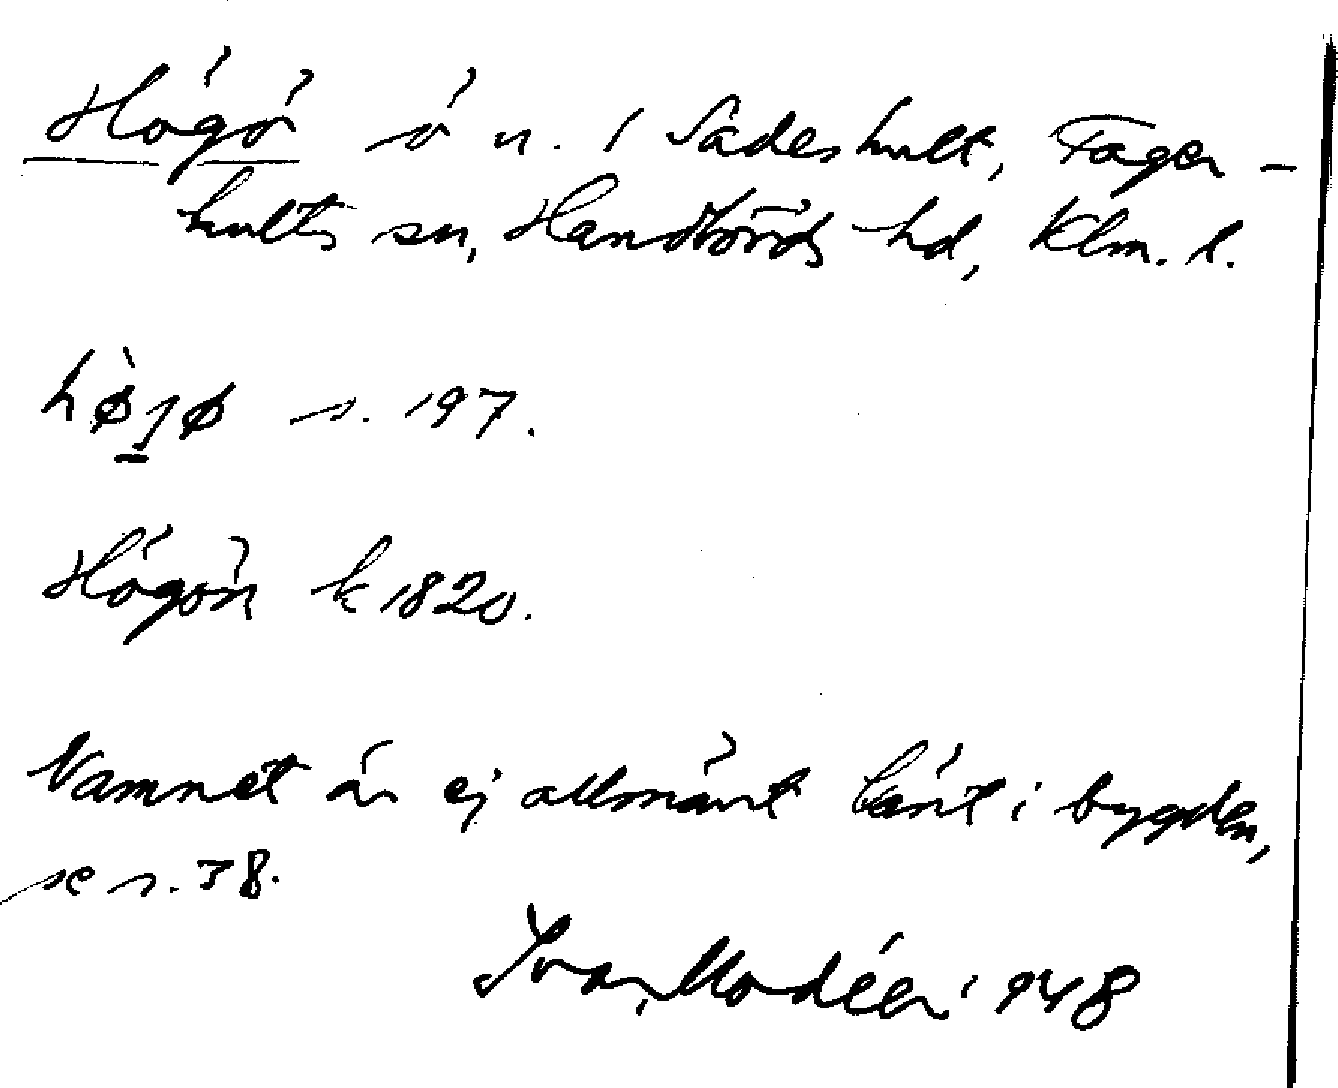 Högö ö n. i Sadeshult, Fager-
hults sn, Handbörds hd, Klm. l.
hø̀gø s. 197.
Högön k 1820.
Namnet är ej allmänt känt i bygden,
se s. 38.
Ivar Modéer 1948